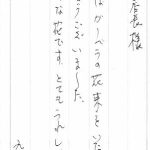 店長様
はガーベラの花束をいた
とうございました。
な花です。とてもうれし